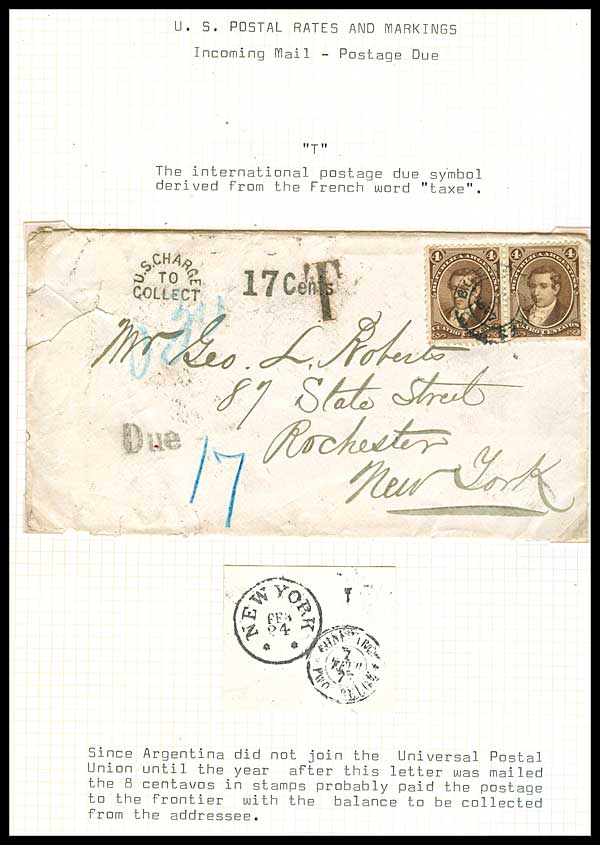 U. S. POSTAL RATES AND MARKINGS
Incoming Mail - Postage Due
"T"
The international postage due symbol
derived from the French word "taxe".
U.S.CHARGE
TO
COLLECT
17 Cents
T
4 4
CUATRO CENTAVOS
Mr Geo. L. Roberts
87 State Street
Rochester
New York
Due
17
NEW YORK
FEB
24
T
Since Argentina did not join the Universal Postal
Union until the year after this letter was mailed
the 8 centavos in stamps probably paid the postage
to the frontier with the balance to be collected
from the addressee.